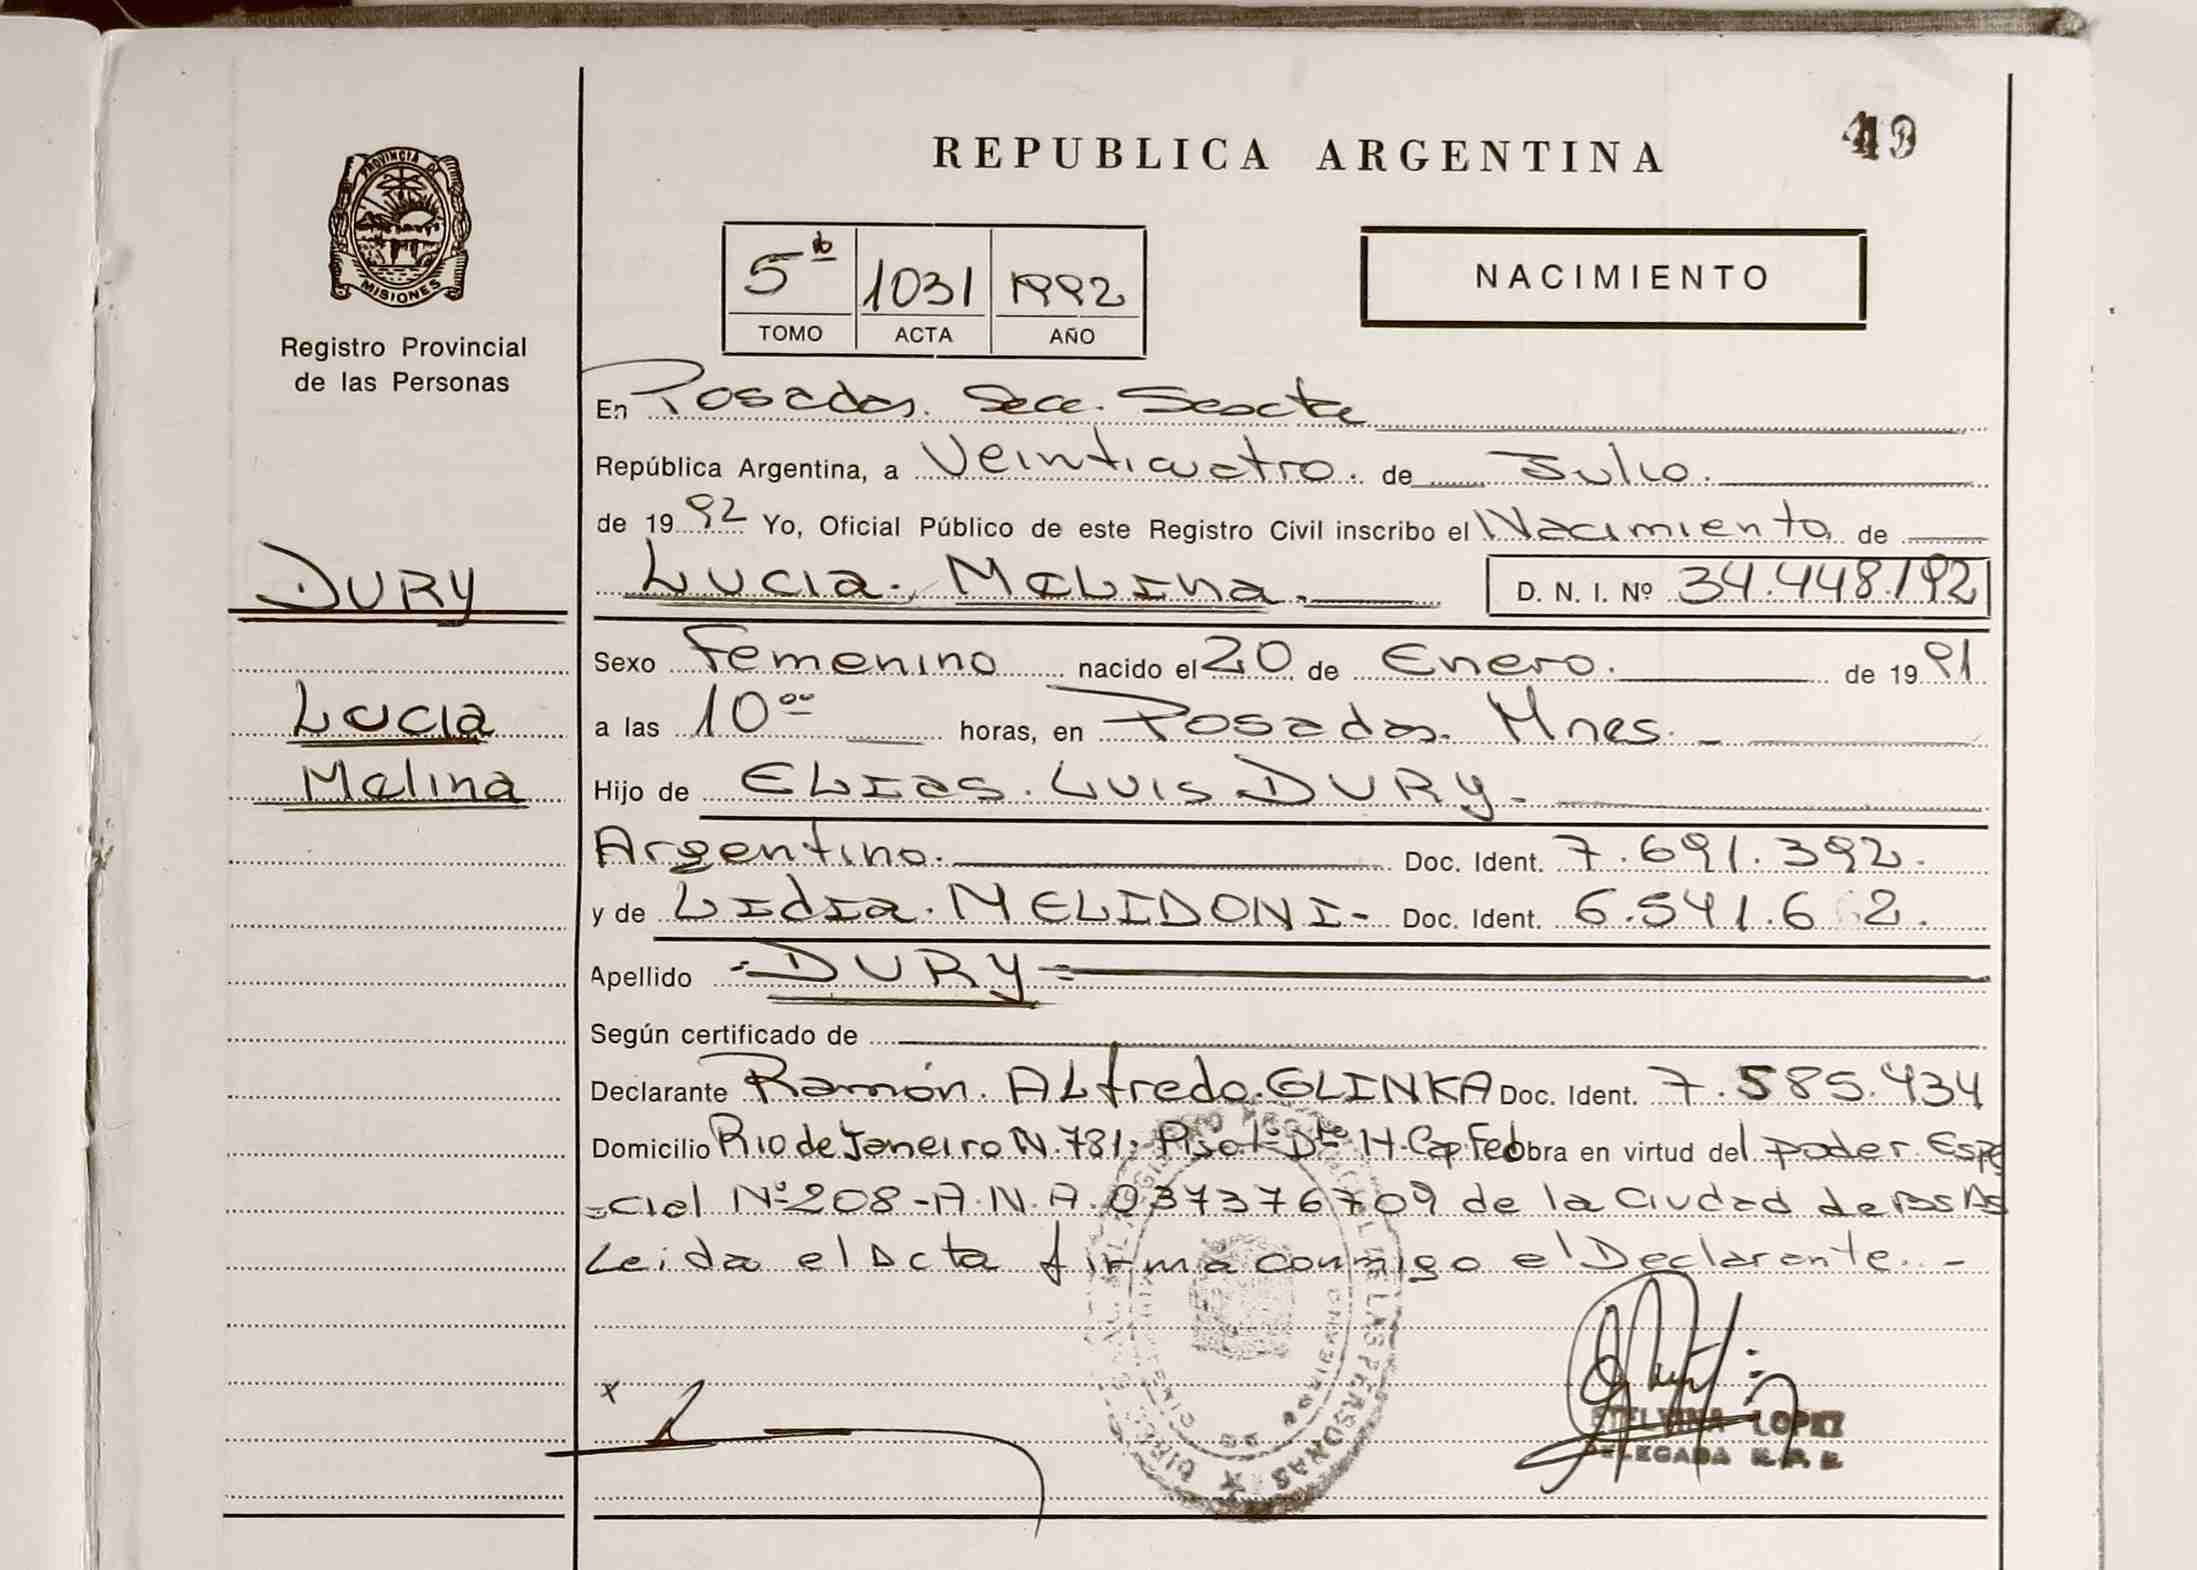 REPUBLICA ARGENTINA
PROVINCIA DE
MISIONES
Registro Provincial
de las Personas
NACIMIENTO
5 1031 1992
TOMO ACTA AÑO
En Posadas. Secc. Sexta
República Argentina, a Veinticuatro. de Julio.
de 1992 Yo, Oficial Público de este Registro Civil inscribo el Nacimiento de
DURY
Lucia. Melina. D. N. I. Nº 34.448.192
Sexo Femenino nacido el 20 de Enero. de 1991
Lucia
a las 10°° horas, en Posadas. Mnes.
Melina
Hijo de ELIAS. LUIS DURY-
Argentino. Doc. Ident. 7.691.392.
y de Lidia. MELIDONI- Doc. Ident. 6.541.6 2.
Apellido =DURY=
Según certificado de
Declarante Ramón. ALfredo. GLINKA Doc. Ident. 7.585.434
Domicilio Rio de Janeiro N. 781; Piso 1º Dto H. Cap. Fed obra en virtud del poder Espe
=cial Nº 208-A.N.A. 037376709 de la Ciudad de Bs As
Leida el Acta firma conmigo el Declarante. -
x
ETELVINA LOPEZ
DELEGADA R.P.P.